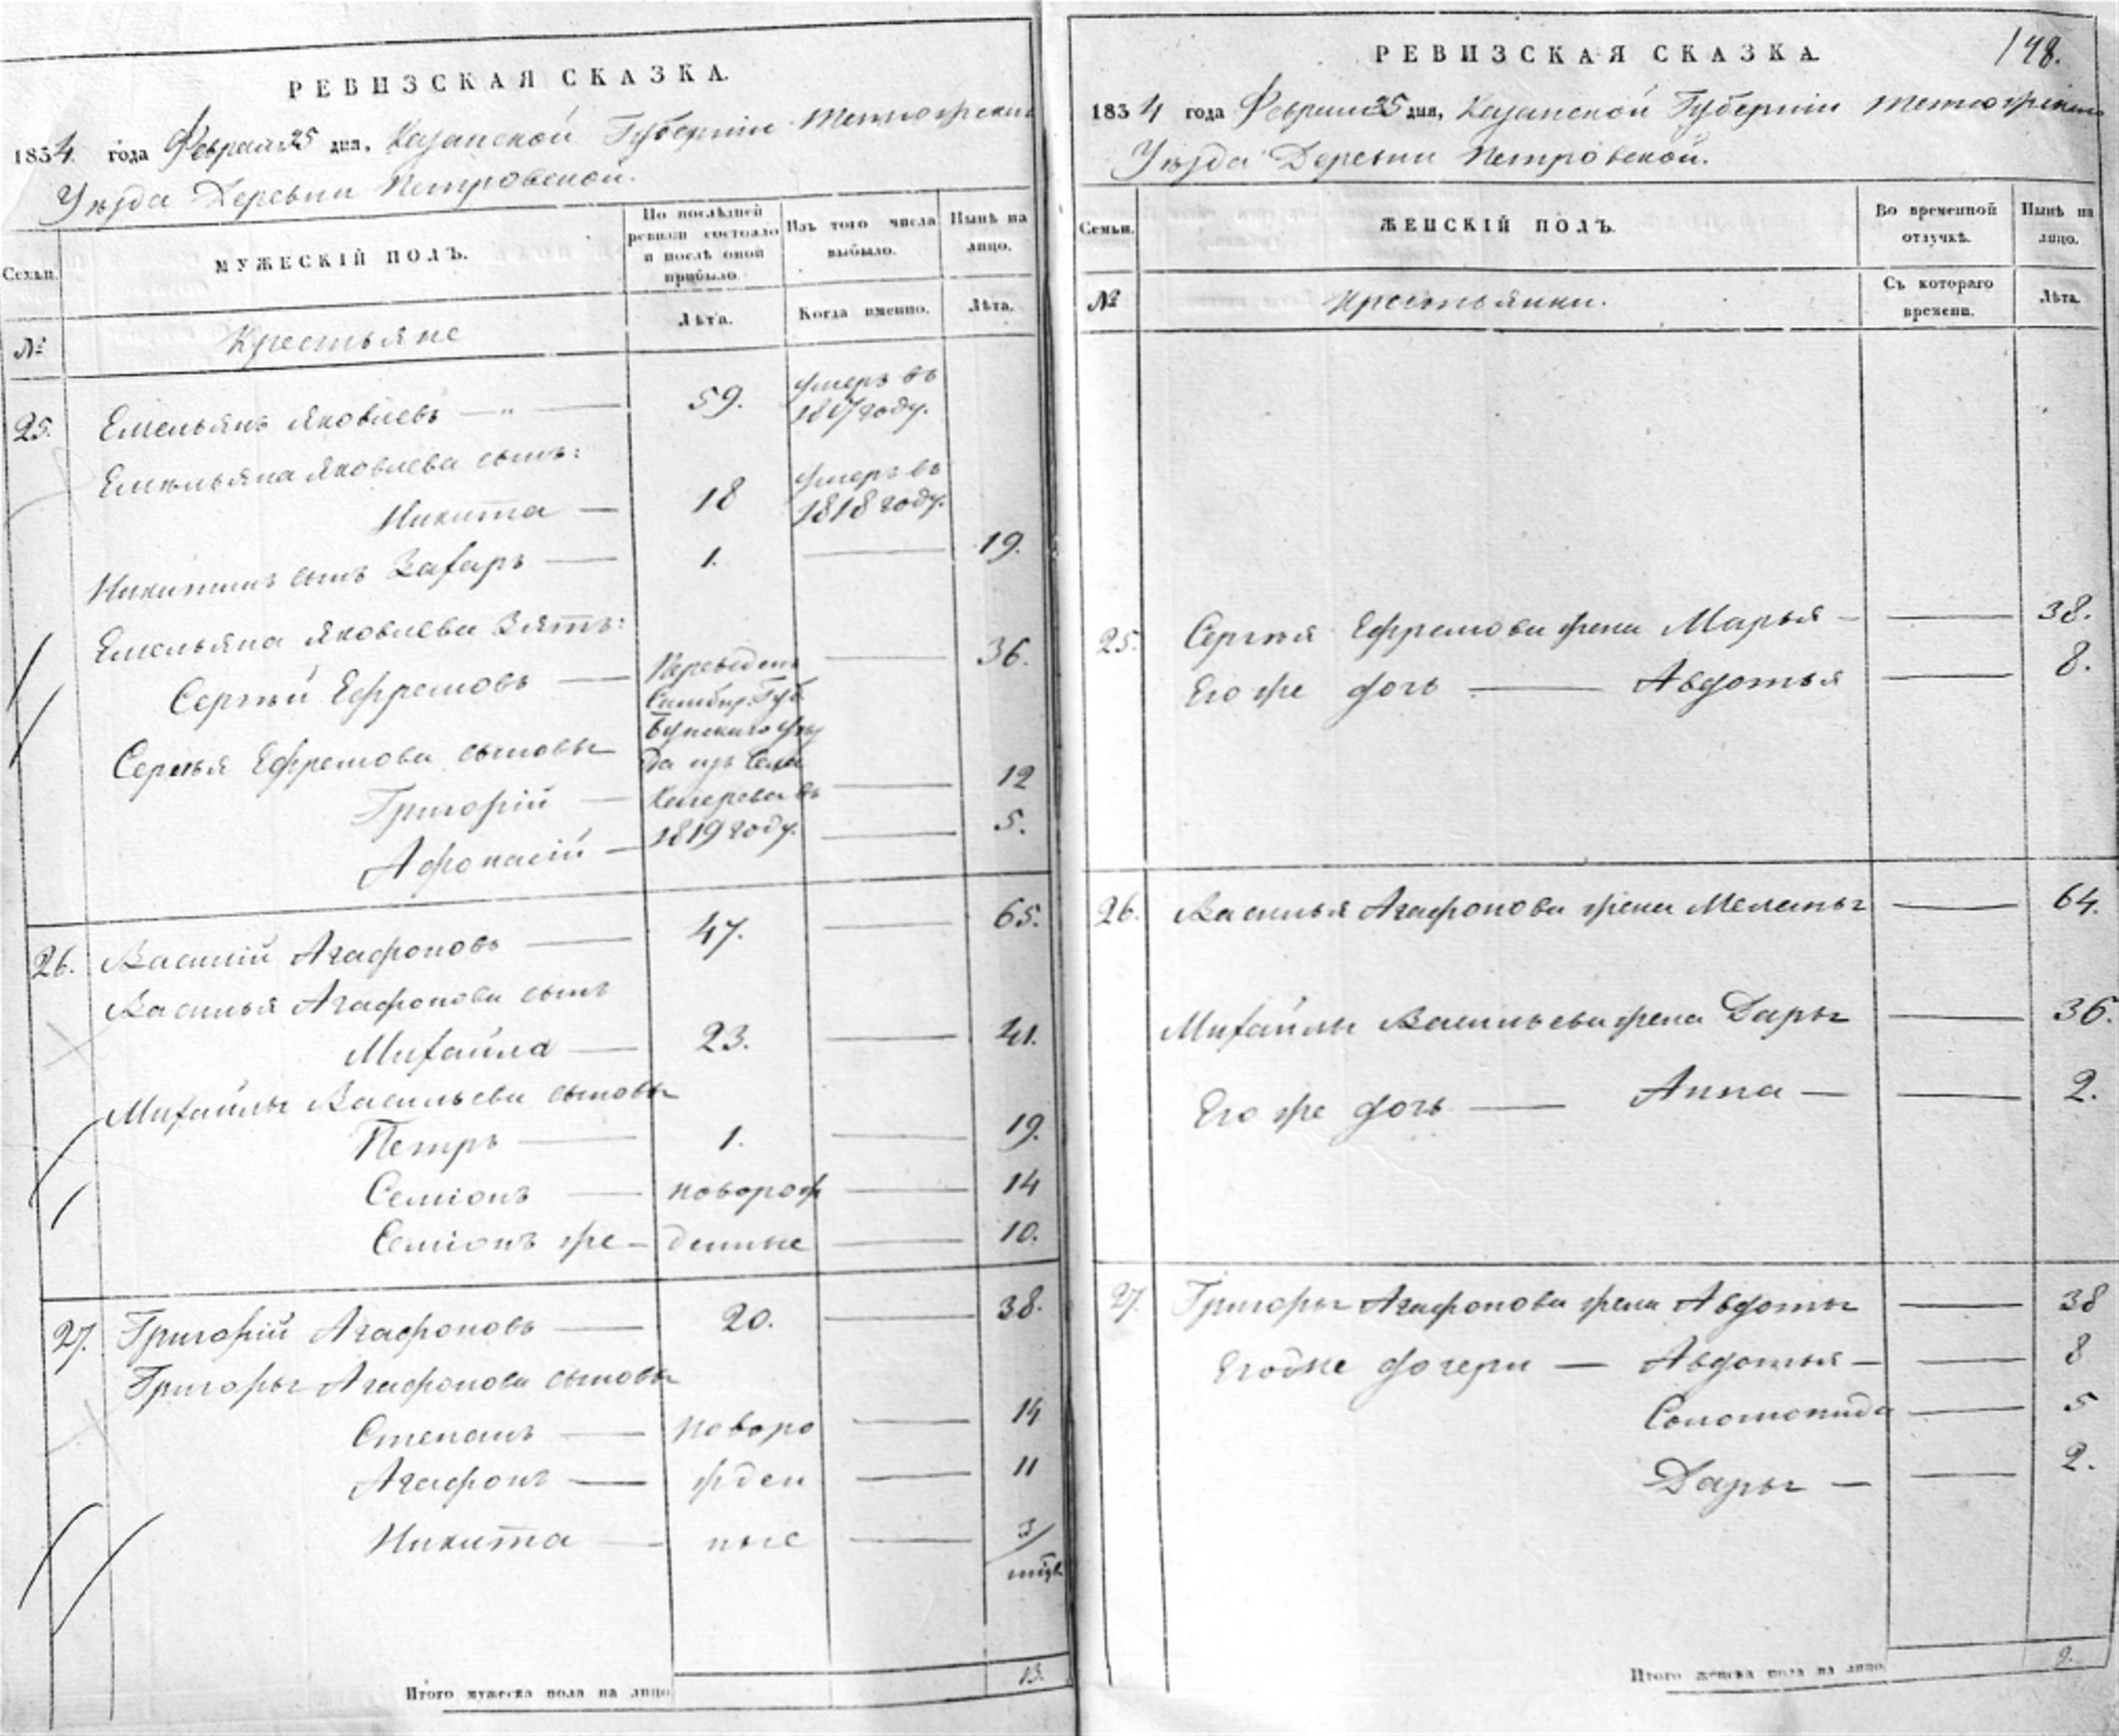 РЕВИЗСКАЯ СКАЗКА.
1834 года Февраля 25 дня, Казанской Губерніи Тетюшскаго
Уѣзда Деревни Петровской.
Семьи.
МУЖЕСКІЙ ПОЛЪ.
По послѣдней ревизіи состояло и послѣ оной прибыло.
Изъ того числа выбыло.
Нынѣ на лицо.
№
Крестьяне
Лѣта.
Когда именно.
Лѣта.
25. Емельянъ Яковлевъ — " — 59. умеръ въ 1817 году.
Емельяна Яковлева сынъ:
Никита — 18 умеръ въ 1818 году.
Никитинъ сынъ Захаръ — 1. — 19.
Емельяна Яковлева Зять:
Сергѣй Ефремовъ — Переведенъ — 36.
Симбир. Губ.
Буинскаго уѣз
Сергѣя Ефремова сыновья
да изъ Села
Григорій — въ — 12
Афонасій — 1819 году. — 5.
26. Василій Агафоновъ — 47. — 65.
Василья Агафонова сынъ
Михайла — 23. — 41.
Михайлы Васильева сыновья
Петръ — 1. — 19.
Семіонъ — новорож — 14
Семіонъ же — денные — 10.
27. Григорій Агафоновъ — 20. — 38.
Григорья Агафонова сыновья
Степанъ — новоро — 14
Агафонъ — жден — 11
Никита — ные — 3/
Итого мужеска пола на лицо 13.
РЕВИЗСКАЯ СКАЗКА.
148.
1834 года Февраля 25 дня, Казанской Губерніи Тетюшскаго
Уѣзда Деревни Петровской.
Семьи.
ЖЕНСКІЙ ПОЛЪ.
Во временной отлучкѣ.
Нынѣ на лицо.
№
Крестьянки.
Съ котораго времени.
Лѣта.
25. Сергѣя Ефремова жена Марья — — 38.
Его же дочь — Авдотья — 8.
26. Василья Агафонова жена Меланья — 64.
Михайлы Васильева жена Дарья — 36.
Его же дочь — Анна — — 2.
27. Григорья Агафонова жена Авдотья — 38
Егоже дочери — Авдотья — — 8
Соломонида — 5
Дарья — — 2.
Итого женска пола на лицо 9.